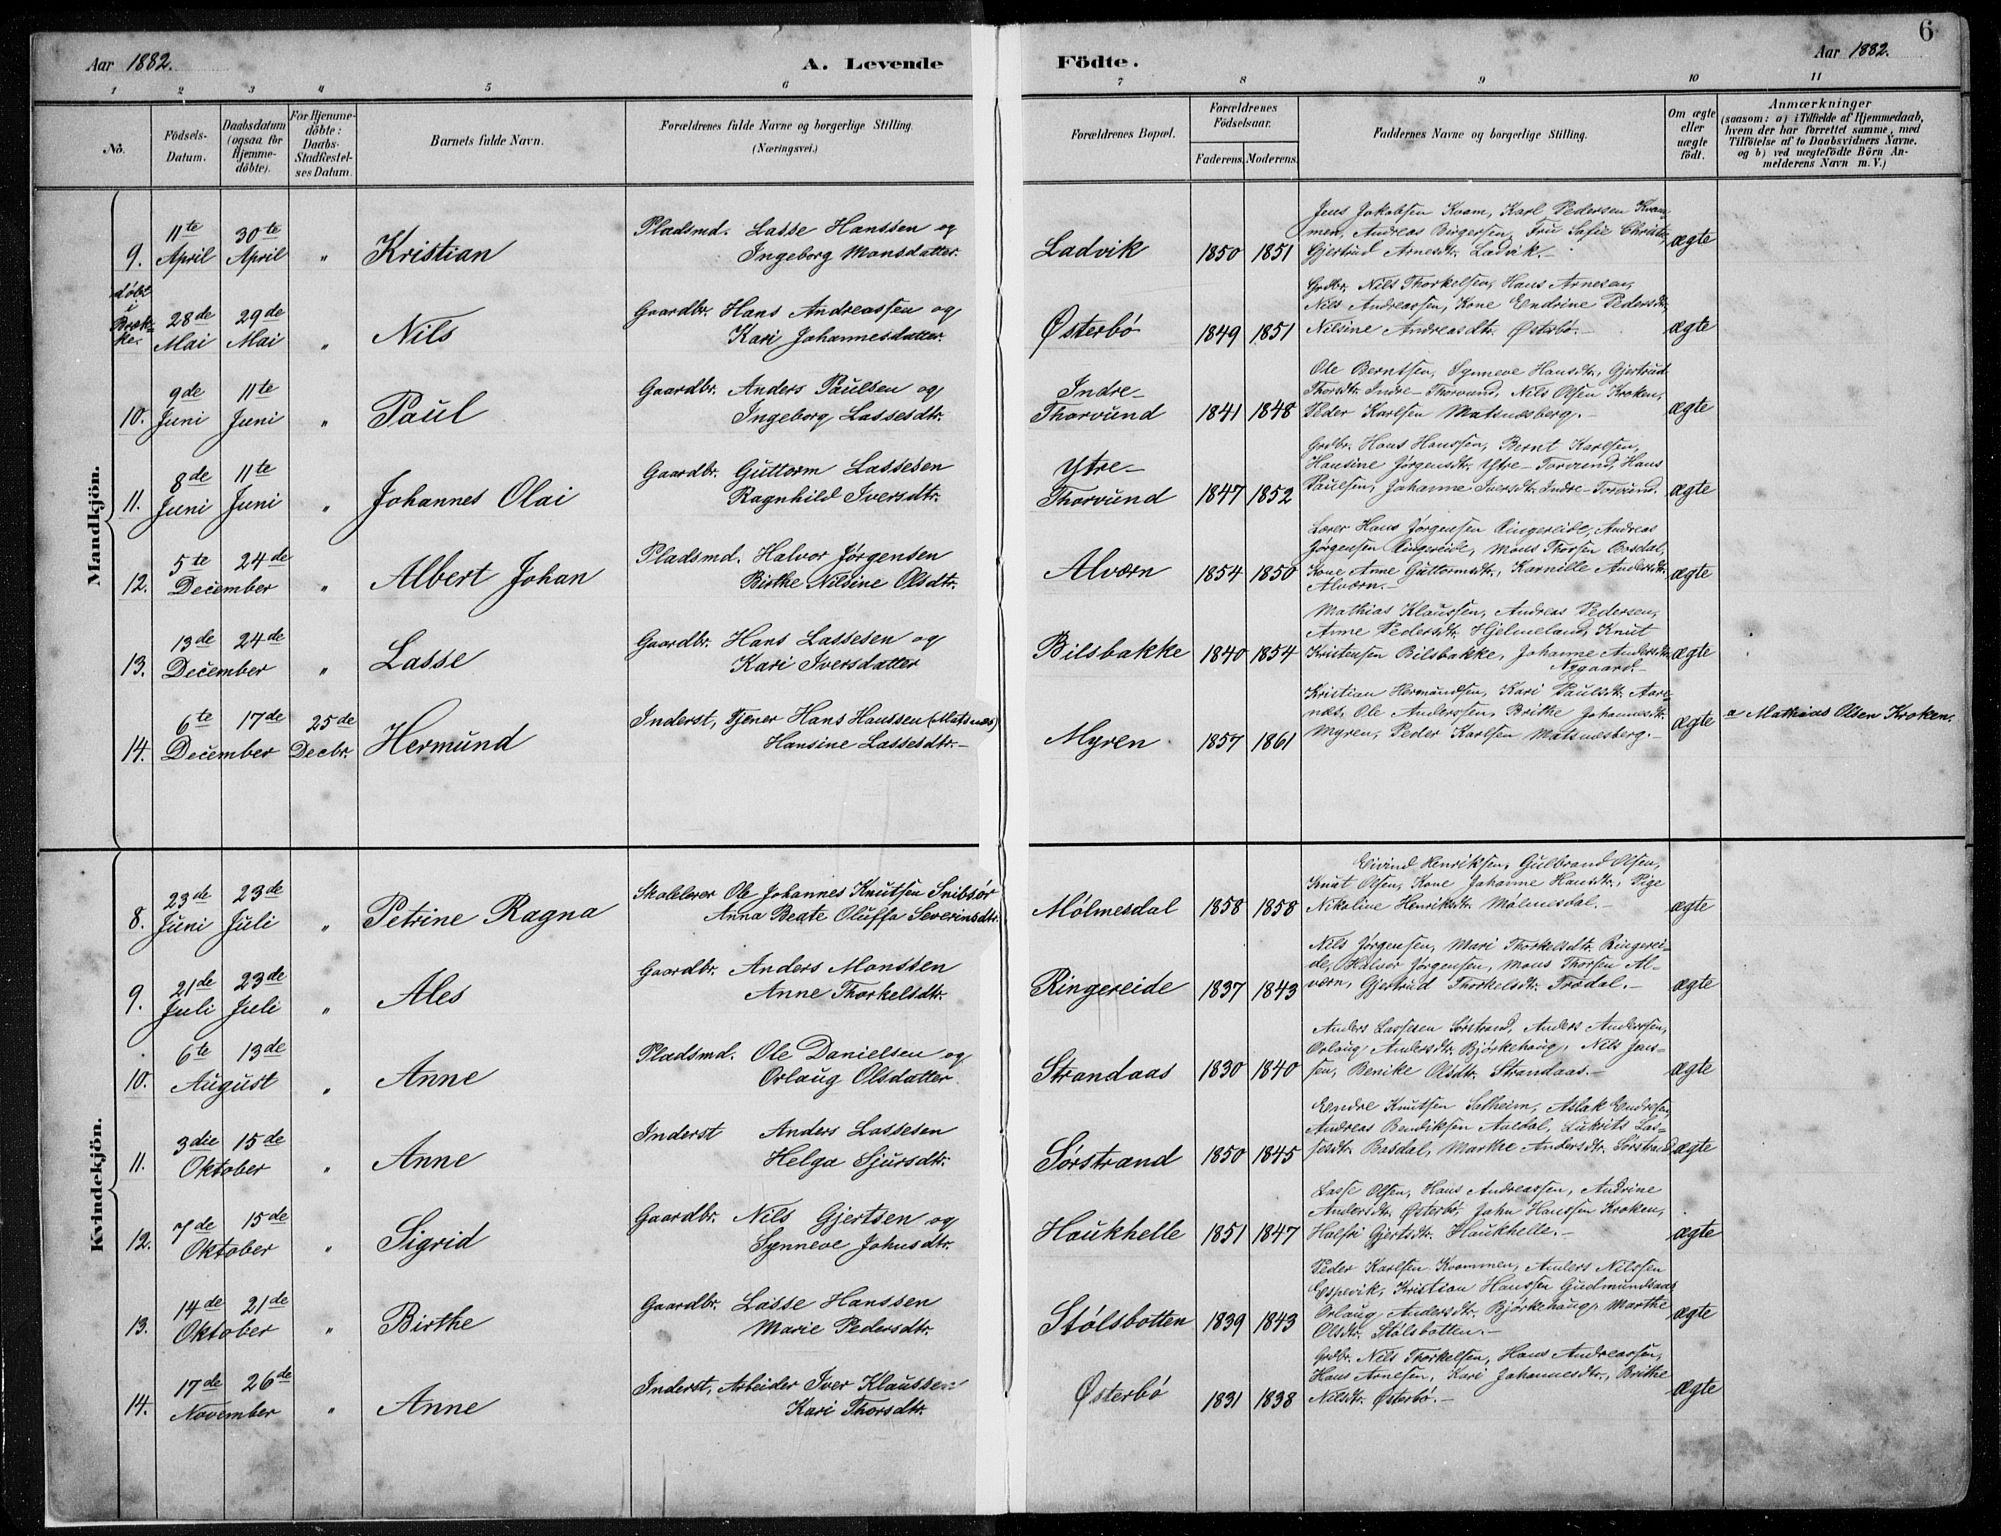 6
Aar 1882. A. Levende Födte. Aar 1882.
1 2 3 4 5 6 7 8 9 10 11
No. Födsels-Datum. Daabsdatum (ogsaa for Hjemmedöbte). For Hjemmedöbte: Daabs-Stadfæstelses Datum. Barnets fulde Navn. Forældrenes fulde Navne og borgerlige Stilling. (Næringsvei.) Forældrenes Bopæl. Forældrenes Födselsaar. Faderens. Moderens. Faddernes Navne og borgerlige Stilling. Om ægte eller uægte födt. Anmærkninger (saasom: a) i Tilfælde af Hjemmedaab, hvem der har forrettet samme, med Tilföielse af to Daabsvidners Navne. og b) ved uægtefödte Börn Anmelderens Navn m. V.)
Mandkjön.
9. 11te April 30te April " Kristian
Pladsmd. Lasse Hanssen og
Ingeborg Monsdatter.
Ladvik 1850 1851
Jens Jakobsen Kvam, Karl Pedersen Kvam-
men, Andreas Birgersen, Fru Sofie Christie,
Gjertrud Arnesdtr. Ladvik.-
ægte
döbt i Brek-ke. 28de Mai 29de Mai " Nils
Gaardbr. Hans Andreassen og
Kari Johannesdatter.
Østerbö 1849 1851
Grdbr. Nils Thorkelsen, Hans Arnesen,
Nils Andreassen, Kone Endrine Pedersdtr.
Nilsine Andreasdtr. Østerbö.-
ægte
10. 9de Juni 11te Juni " Paul
Gaardbr. Anders Paulsen og
Ingeborg Lassesdtr.
Indre-
Thorvund 1841 1848
Ole Berntsen, Synneve Hansdtr, Gjertrud
Thorsdtr. Indre-Thorvund, Nils Olsen Kroken,
Peder Karlsen Matsnesberg.-
ægte
11. 8de Juni 11te Juni " Johannes Olai
Gaardbr. Guttorm Lassesen
Ragnhild Iversdtr.
Ytre-
Thorvund 1847 1852
Grdbr. Hans Hanssen, Bernt Karlsen,
Hansine Jørgensdtr. Ytre-Torvund, Hans
Paulsen, Johanne Iversdtr. Indre-Torvund.
ægte
12. 5te 24de December " Albert Johan
Pladsmd. Halvor Jørgensen
Birthe Nilsine Olsdtr.
Alværn 1854 1850
Lærer Hans Jørgensen Ringereide, Andreas
Jørgensen Ringereide, Mons Thorsen
Kone Anne Guttormsdtr., Karnille Andersdtr.
Alværn.-
ægte
13. 13de 24de December " Lasse
Gaardbr. Hans Lassesen og
Kari Iversdatter
Bilsbakke 1840 1854
Mathias Klaussen, Andreas Pedersen,
Anne Pedersdtr. Hjelmeland, Knut
Kristensen Bilsbakke, Johanne Andersdtr.
Nygaard.-
ægte
14. 6te 17de December 25de Decbr. Hermund
Inderst, Tjener Hans Hanssen (Matsnes)
Hansine Lassesdtr.-
Myren 1857 1861
Kristian Hermundsen, Kari Paulsdtr. Aare-
næs, Ole Anderssen, Brithe Johannesdtr.
Myren, Peder Karlsen Matsnæsberg.-
ægte
a Mathias Olsen Kroken.
Kvindekjön.
8. 23de Juni 23de Juli " Petrine Ragna
Skolelærer Ole Johannes Knutsen Snilsör
Anna Beate Oluffa Severinsdtr.
Mölmesdal 1858 1858
Eivind Henriksen, Gulbrand Olsen,
Knut Olsen, Kone Johanne Hansdtr., Pige
Nikoline Henriksdtr. Mölmesdal.-
ægte
9. 21de Juli 23de Juli " Ales
Gaardbr. Anders Monssen
Anne Thorkelsdtr.
Ringereide 1837 1843
Nils Jørgensen, Mari Thorkelsdtr. Ringerei-
de, Halvor Jørgensen, Mons Thorsen Al-
værn, Gjertrud Thorkelsdtr. Trodal.-
ægte
10. 6te 13de August " Anne
Pladsmd. Ole Danielsen og
Orlaug Olsdatter.
Strandaas 1830 1840
Anders Lassesen Sörstrand, Anders Anderssen,
Orlaug Andersdtr. Björkehaug, Nils Jens-
sen, Benike Olsdtr. Strandaas.-
ægte
11. 3die 15de Oktober " Anne
Inderst Anders Lassesen
Helga Sjursdtr.
Sörstrand 1850 1845
Endre Knutsen Salheim, Aslak Endresen,
Andreas Bendiksen Lukrits Las-
sesdtr. Basdal, Marthe Andersdtr. Sörstrand
ægte
12. 7de 15de Oktober " Sigrid
Gaardbr. Nils Gjertsen og
Synneve Johnsdtr.
Haukhelle 1851 1847
Lasse Olsen, Hans Andreassen, Andrine
Andersdtr. Østerbö, John Hanssen Kroken,
Halfri Gjertsdtr. Haukhelle.-
ægte
13. 14de 21de Oktober " Birthe
Gaardbr. Lasse Hanssen
Marie Pedersdtr.
Stölsbotten 1839 1843
Peder Karlsen Kvammen, Anders Nilssen
Espevik, Kristian Hanssen Gudmundsaas
Orlaug Andersdtr. Björkehaug, Marthe
Olsdtr. Stölsbotten.-
ægte
14. 17de 26de November " Anne
Inderst, Arbeider Iver Klaussen
Kari Thorsdtr.
Østerbö 1831 1838
Grdbr. Nils Thorkelsen, Hans Andreassen,
Hans Arnesen, Kari Johannesdtr., Brithe
Nilsdtr. Østerbö.-
ægte